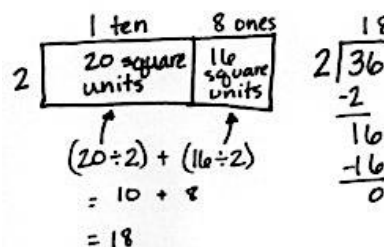 1 ten 8 ones
2 20 square units 16 square units
(20÷2) + (16÷2)
= 10 + 8
= 18
18
2 36
-2
16
-16
0